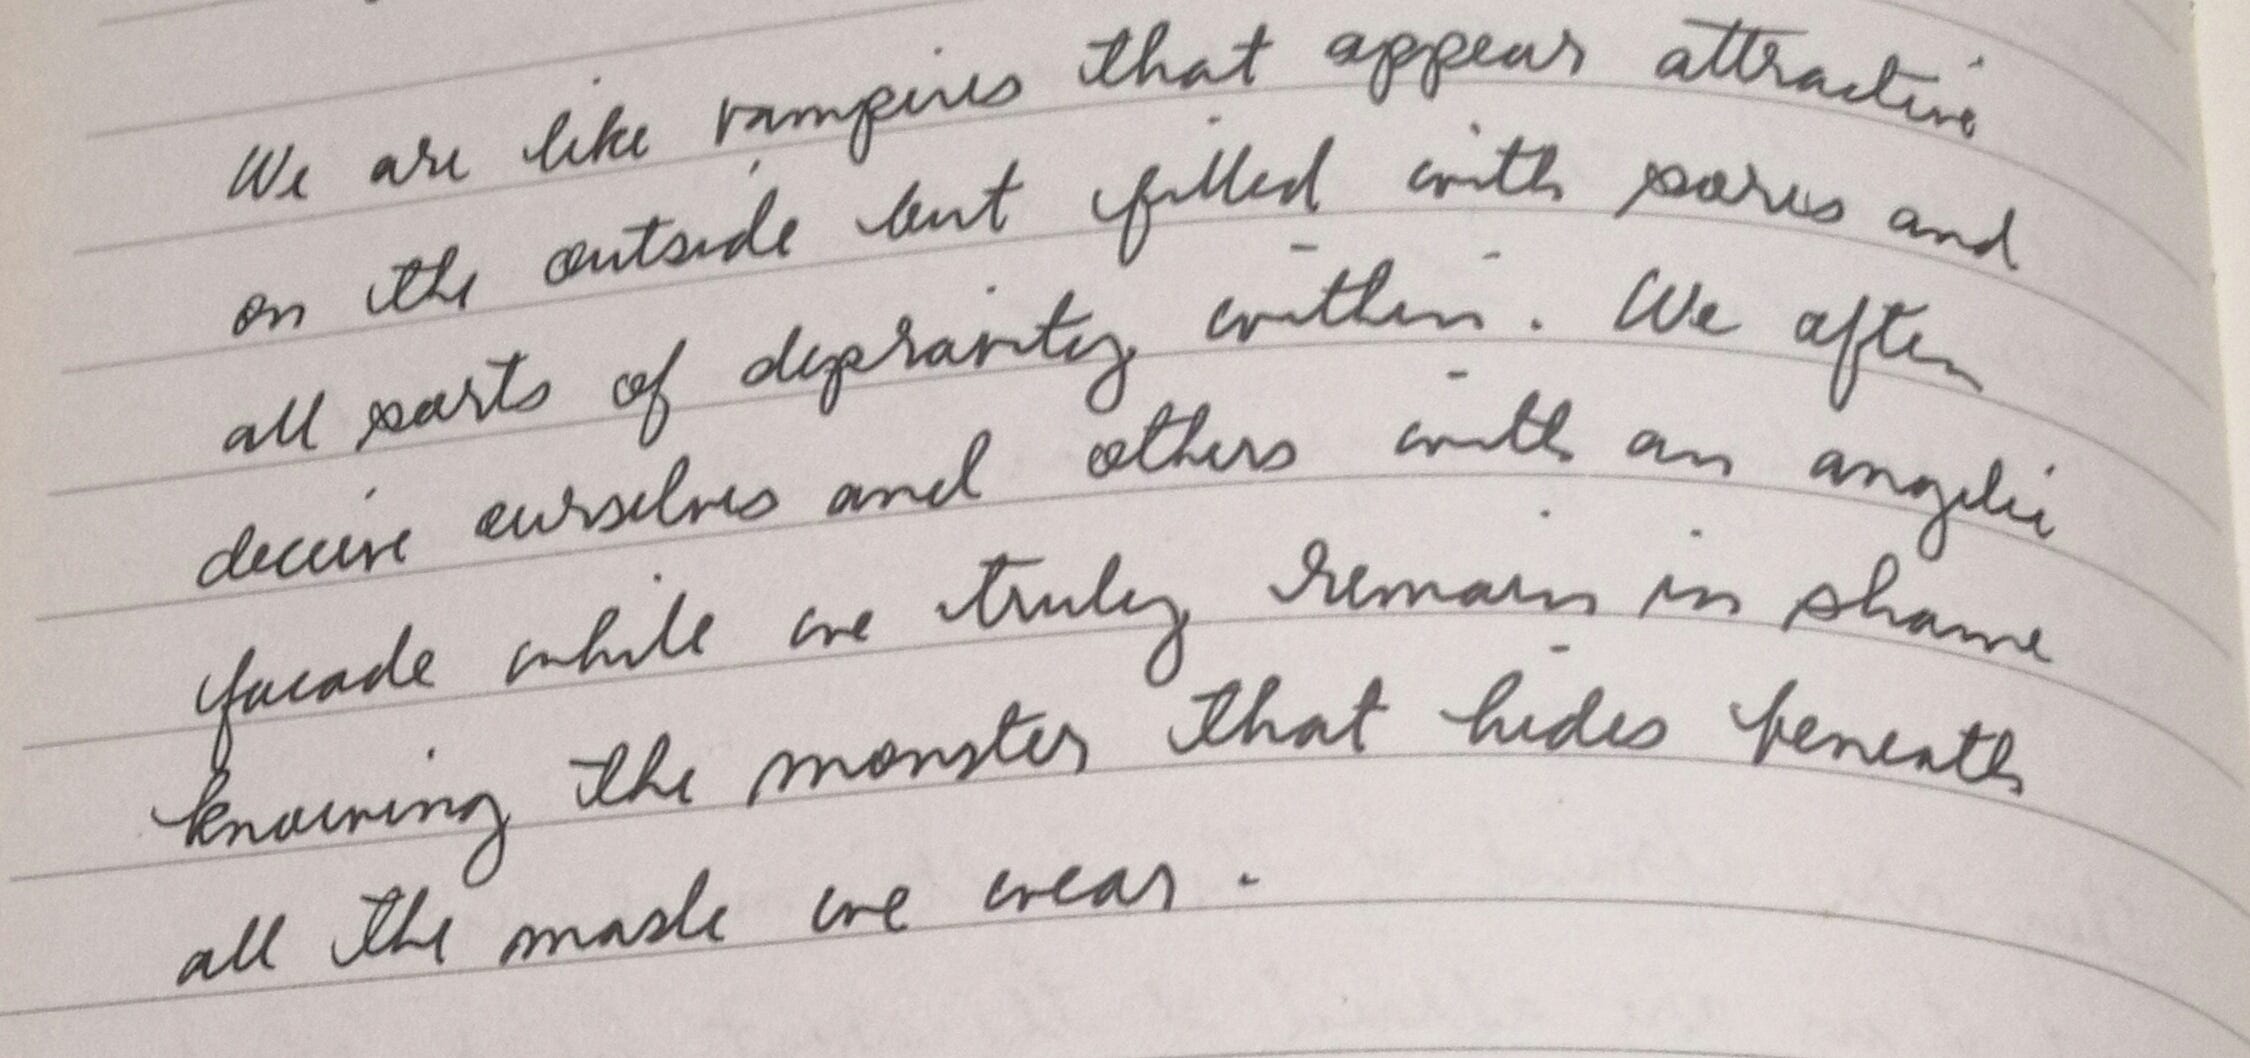 We are like vampires that appear attractive
on the outside but filled with sores and
all sorts of depravity within. We often
deceive ourselves and others with an angelic
facade while we truly remain in shame
knowing the monster that hides beneath
all the mask we wear.